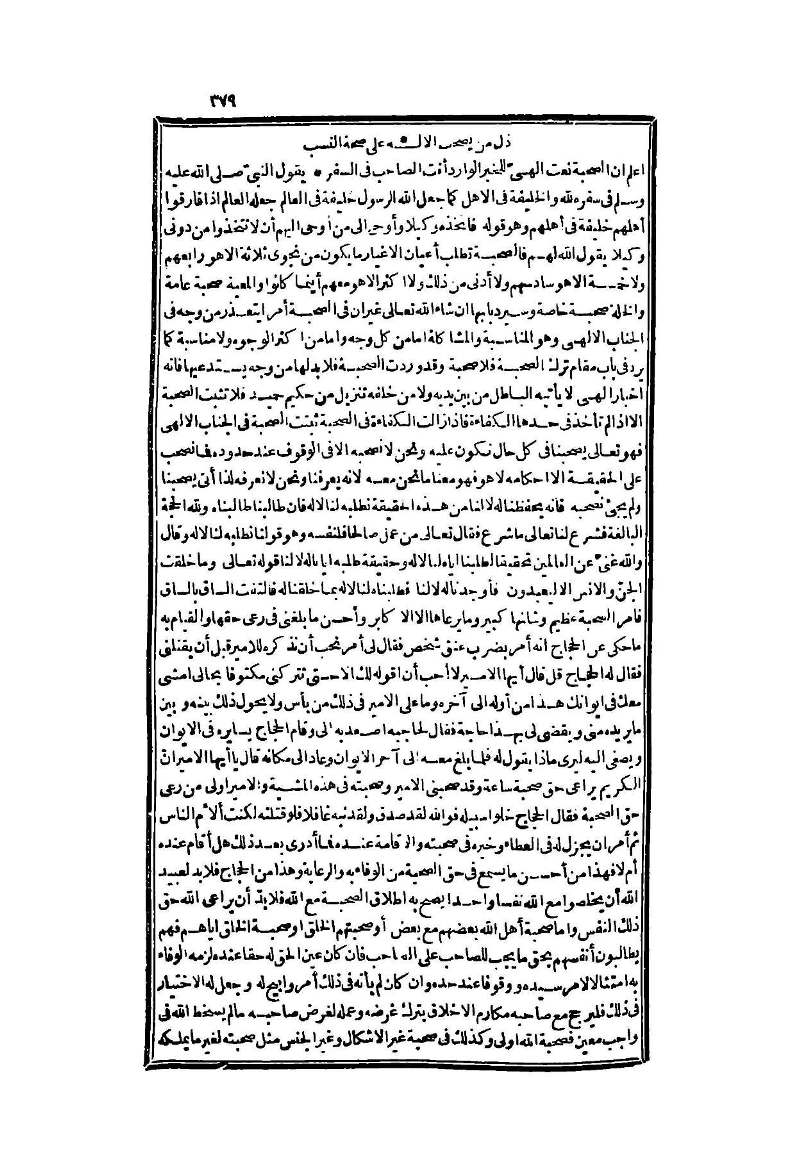 ٣٧٩
ذل من يصحب الاله على صحة النسب
اعلم ان الصحبة نعت الهىّ للخبر الوارد أنت الصاحب فى السفر * يقول النبىّ صلى الله عليه
وسلم فى سفره لله والخليفة فى الاهل كما جعل الله الرسول خليفة فى العالم جعله العالم اذا فارقوا
أهلهم خليفة فى أهلهم وهو قوله فاتخذه وكيلا وأوحى الى من أوحى اليهم أن لا تتخذوا من دونى
وكيلا يقول الله لهم فالصحبة تطلب أعيان الاغيار ما يكون من نجوى ثلاثة الا هو رابعهم
ولا خمسة الا هو سادسهم ولا أدنى من ذلك ولا اكثر الا هو معهم أينما كانوا والمعية صحبة عامة
والخلة صحبة خاصة وسيرد بابها ان شاء الله تعالى غير ان فى الصحبة أمرا يتعذر من وجه فى
الجناب الالهى وهو المناسبة والمشاكلة اما من كل وجه واما من اكثر الوجوه ولا مناسبة كما
يرد فى باب مقام ترك الصحبة فلا صحبة وقد وردت الصحبة فلا بد لها من وجه يستدعيها فانه
اخبار الهى لا يأتيه الباطل من بين يديه ولا من خلفه تنزيل من حكيم حميد فلا تثبت الصحبة
الا اذا لم تأخذ فى حدها الكفاءة فاذا زالت الكفاءة فى الصحبة ثبتت الصحبة فى الجناب الالهى
فهو تعالى يصحبنا فى كل حال نكون عليه ونحن لا نصحبه الا فى الوقوف عند حدوده فما نصحب
على الحقيقة الا احكامه لا هو فهو معنا ما نحن معه لانه يعرفنا ونحن لا نعرفه لذا أتى يصحبنا
ولم يجئ نصحبه فانه يحفظنا له لا لنا من هذه الحقيقة نطلبه لنا لا له فان طالبنا طالبناه ولله الحجة
البالغة فشرع لنا تعالى ما شرع فقال تعالى من عمل صالحا فلنفسه وهو قولنا نطلبه لنا لا له وقال
والله غنىّ عن العالمين تحقيقا لطلبنا اياه لنا لا له وحقيقة طلبه ايانا له لا لنا قوله تعالى وما خلقت
الجنّ والانس الا ليعبدون فأوجدنا له لا لنا فطلبناه لنا لا له بما خلقنا له فالتفت الساق بالساق
فامر الصحبة عظيم وشانها كبير وما يرعاها الا الاكابر وأحسن ما بلغنى فى رعى حقها والقيام به
ما حكى عن الحجاج انه أمر بضرب عنق شخص فقال لى أمر نحب أن نذكره للامير قبل أن يقتلنى
فقال له الحجاج قل قال أيها الامير لا أحب أن اقوله لك الا حتى تتركنى مكتوفا بحالى امشى
معك فى ايوانك هذا من أوله الى آخره وما على الامير فى ذلك من بأس ولا يحول ذلك بينه وبين
ما يريده منى ويقضى لى بهذا حاجة فقال لحاجبه اصعد به الى وقام الحجاج يسايره فى الايوان
ويصغى اليه ليرى ماذا يقول له فلما بلغ معه الى آخر الايوان وعاد الى مكانه قال يا أيها الامير ان
الكريم يراعى حق صحبة ساعة وقد صحبنى الامير وصحبته فى هذه المشية والامير اولى من رعى
حق الصحبة فقال الحجاج خلوا سبيله فوالله لقد صدق ولقد نبه غافلا فلو قتلته لكنت ألأم الناس
ثم أمر ان يجزل له فى العطاء وخيره فى صحبته والاقامة عنده فما أدرى بعد ذلك هل أقام عنده
أم لا فهذا من أحسن ما يسمع فى حق الصحبة من الوفاء به والرعاية وهذا من الحجاج فلا بد لعبيد
الله أن يخلصوا مع الله نفسا واحدا يصح به اطلاق الصحبة مع الله فلا بدّ أن يراعى الله حق
ذلك النفس واما صحبة أهل الله بعضهم مع بعض أو صحبتهم الخلق او صحبة الخلق اياهم فهم
يطالبون أنفسهم بحق ما يجب للصاحب على الصاحب فان كان عين الحق له حقا عنده لزمه الوفاء
به امتثالا لامر سيده ووقوفا عند حده وان كان لم يأته فى ذلك أمر وابيح له وجعل له الاختيار
فى ذلك فليرجح مع صاحبه مكارم الاخلاق بترك غرضه وعمله لغرض صاحبه ما لم يسخط الله فى
واجب معين فصحبة الله اولى وكذلك فى صحبة غير الاشكال وغير الجنس مثل صحبته لغير ما يملكه